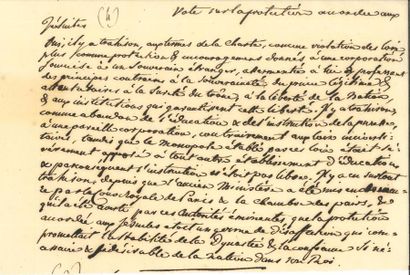 Vote sur la protection accordée aux
Jésuites (4)
Oui, il y a trahison, aux termes de la Charte, comme violation des loix
plus comme protection & encouragemens donnés à une corporation
soumise à un Souverain étranger, assermentée à lui & professant
des principes contraires à la Souveraineté du prince légitime &
attentatoires à la Sureté du trône, à la liberté de la Nation
& aux institutions qui garantissent cette liberté. Il y a trahison,
comme abandon de l'éducation & des institutions de la
à une pareille corporation, contrairement aux loix
tandis que le monopole établi par ces loix était
opposé à tout autre établissement d'éducation
& par conséquent l'instruction n'était pas libre. Il y a eu surtout
trahison, depuis que l'ancien Ministère a été mis en demeure
par la Cour royale de Paris & la Chambre des pairs, &
par ces autorités éminentes que la protection
accordée aux Jésuites était un germe de désaffection qui com-
promettait la stabilité de la Dynastie & la confiance si né-
cessaire & si désirable de la Nation dans son Roi.